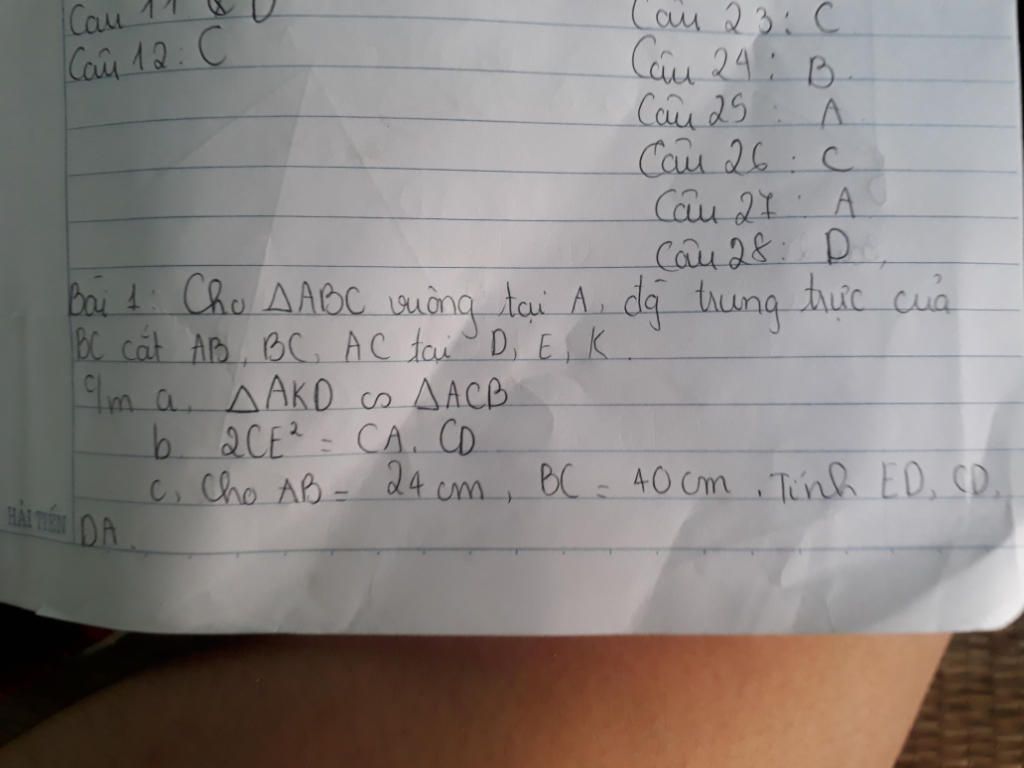 Câu 11 & D
Câu 12: C
Câu 23: C
Câu 24: B
Câu 25: A
Câu 26: C
Câu 27: A
Câu 28: D
Bài 1: Cho ΔABC vuông tại A, đg̃ trung trực của
BC cắt AB, BC, AC tại D, E, K.
c/m a, ΔAKD ∽ ΔACB
b. 2CE² = CA. CD
c, Cho AB = 24 cm, BC = 40 cm. Tính ED, CD,
HẢI TIẾN
DA.